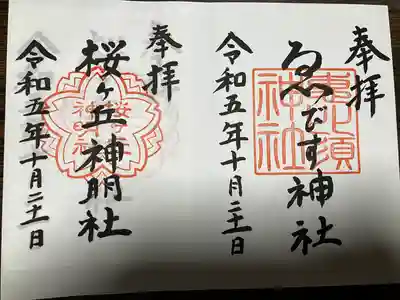 奉拝
ゑびす神社
恵比須神社
令和五年十月二十一日
奉拝
桜ヶ丘神明社
令和五年十月二十一日